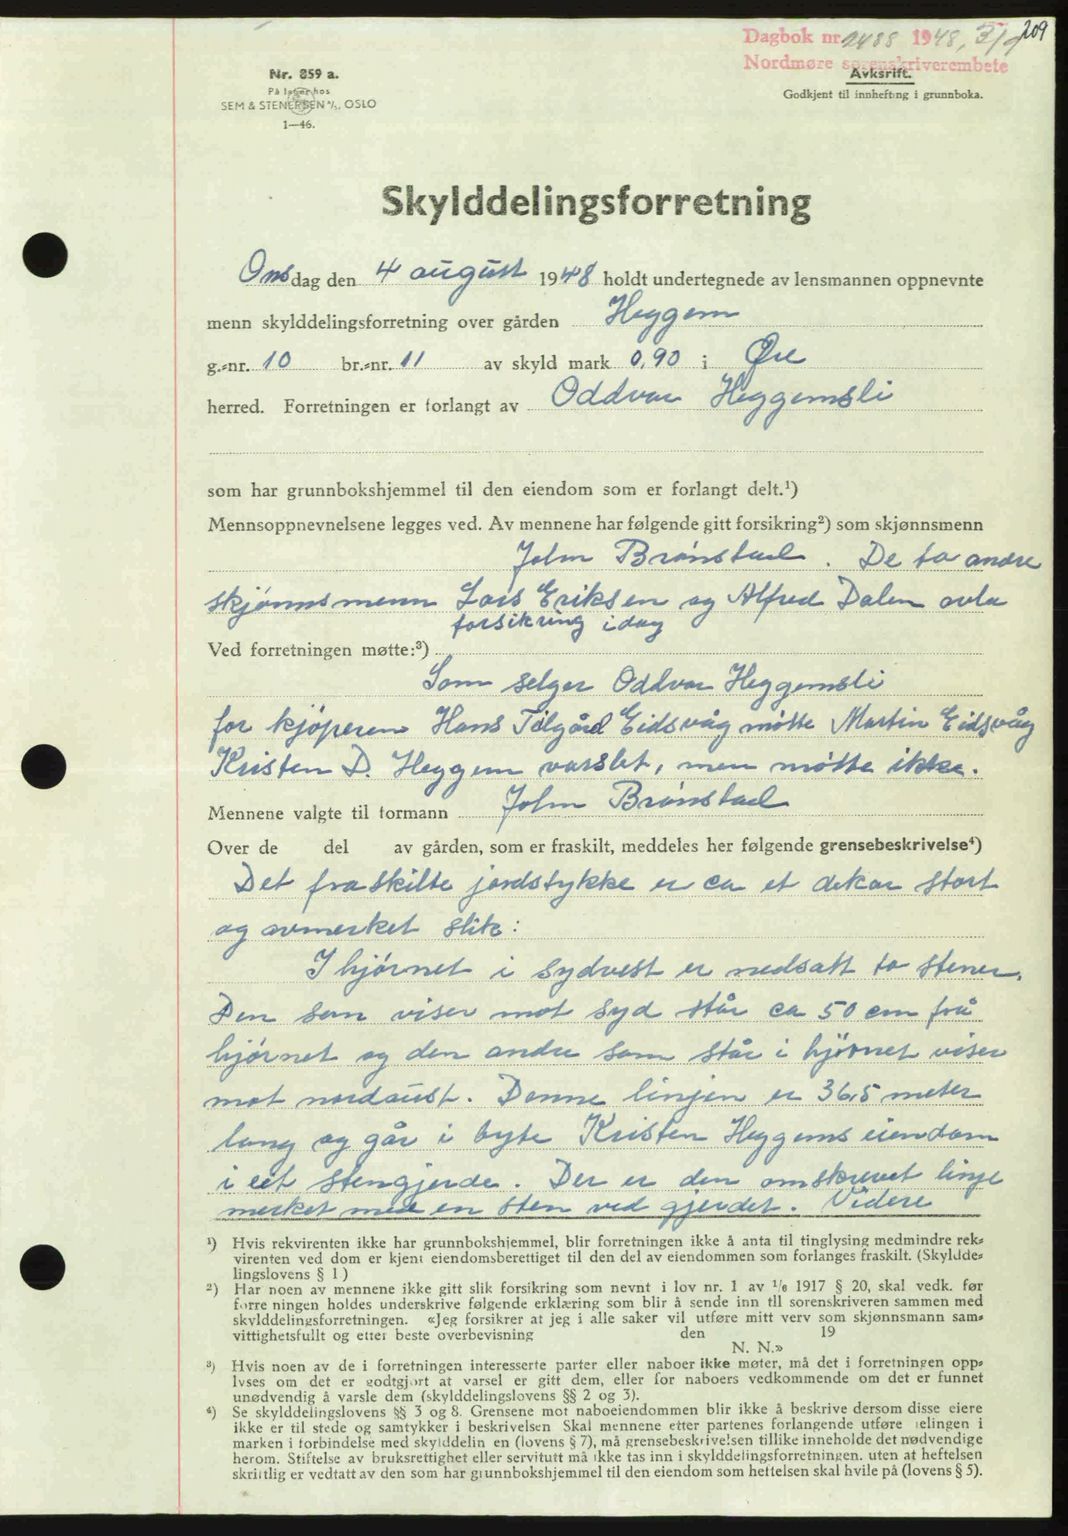 209
Dagbok nr. 2488 1948, 3/9
Nordmøre sorenskriverembete
Nr. 859 a.
På lager hos
SEM & STENERSEN A/S, OSLO
1—46.
Avksrift.
Godkjent til innhefting i grunnboka.
Skylddelingsforretning
Onsdag den 4 august 1948 holdt undertegnede av lensmannen oppnevnte
menn skylddelingsforretning over gården Heggem
g.-nr. 10 br.-nr. 11 av skyld mark 0,90 i Øre
herred. Forretningen er forlangt av Oddvar Heggemsli
som har grunnbokshjemmel til den eiendom som er forlangt delt.¹)
Mennsoppnevnelsene legges ved. Av mennene har følgende gitt forsikring²) som skjønnsmenn
John Brønstad. De to andre
skjønnsmenn Lars Eriksen og Alfred Dalen avla
forsikring idag
Ved forretningen møtte:³)
Som selger Oddvar Heggemsli
for kjøperen Hans Tølgård Eidsvåg møtte Martin Eidsvåg
Kristen D. Heggem varslet, men møtte ikke.
Mennene valgte til formann John Brønstad
Over de del av gården, som er fraskilt, meddeles her følgende grensebeskrivelse⁴)
Det fraskilte jordstykke er ca et dekar stort
og avmerket slik:
I hjørnet i sydvest er nedsatt to stener.
Den som viser mot syd står ca 50 cm frå
hjørnet og den andre som står i hjørnet viser
mot nordaust. Denne linjen er 36,5 meter
lang og går i byte Kristen Heggems eiendom
i eit stengjerde. Der er den omskrevet linje
merket med en sten ved gjerdet. Videre
¹) Hvis rekvirenten ikke har grunnbokshjemmel, blir forretningen ikke å anta til tinglysing medmindre rek-
virenten ved dom er kjent eiendomsberettiget til den del av eiendommen som forlanges fraskilt. (Skyldde-
lingslovens § 1)
²) Har noen av mennene ikke gitt slik forsikring som nevnt i lov nr. 1 av 1/6 1917 § 20, skal vedk. før
forretningen holdes underskrive følgende erklæring som blir å sende inn til sorenskriveren sammen med
skylddelingsforretningen. «Jeg forsikrer at jeg i alle saker vil utføre mitt verv som skjønnsmann sam-
vittighetsfullt og etter beste overbevisning den 19
N. N.»
³) Hvis noen av de i forretningen interesserte parter eller naboer ikke møter, må det i forretningen opp-
lyses om det er godtgjort at varsel er gitt dem, eller for naboers vedkommende om det er funnet
unødvendig å varsle dem (skylddelingslovens §§ 2 og 3).
⁴) Se skylddelingslovens §§ 3 og 8. Grensene mot naboeiendommen blir ikke å beskrive dersom disse eiere
ikke er til stede og samtykker i beskrivelsen Skal mennene etter partenes forlangende utføre delingen i
marken i forbindelse med skylddelingen (lovens § 7), må grensebeskrivelsen tillike inneholde det nødvendige
herom. Stiftelse av bruksrettighet eller servitutt må ikke tas inn i skylddelingsforretningen. uten at heftelsen
skriftlig er vedtatt av den som har grunnbokshjemmel til den eiendom som heftelsen skal hvile på (lovens § 5).